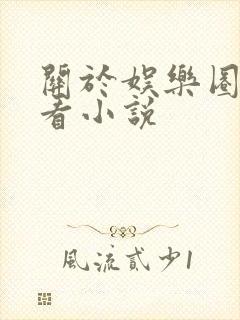 關於娛樂圈
看小說
風流貳少1